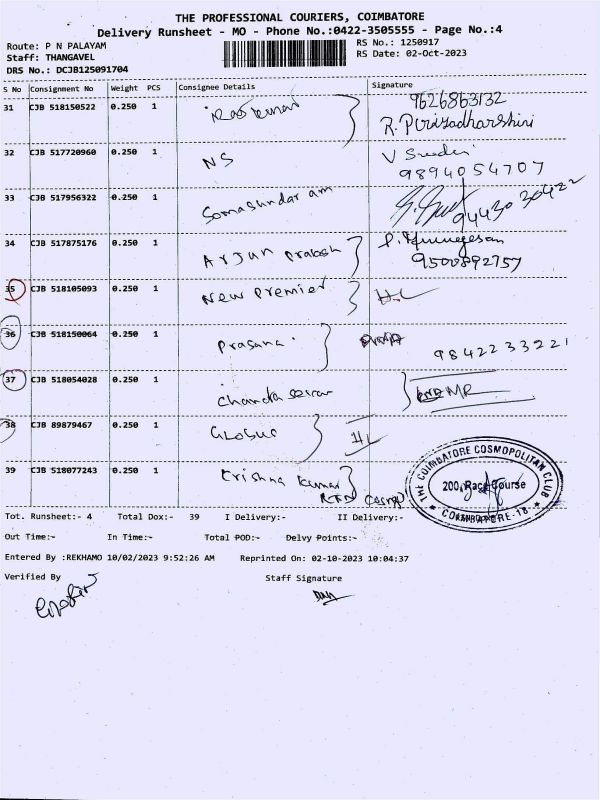 THE PROFESSIONAL COURIERS, COIMBATORE
Delivery Runsheet - MO - Phone No.:0422-3505555 - Page No.:4
Route: P N PALAYAM
Staff: THANGAVEL
DRS No.: DCJB125091704
RS No.: 1250917
RS Date: 02-Oct-2023
S No Consignment No Weight PCS Consignee Details Signature
31 CJB 518150522 0.250 1 9626863132
32 CJB 517720960 0.250 1 NS V
9894054707
33 CJB 517956322 0.250 1 Somasundaram 94430 30422
34 CJB 517875176 0.250 1 Arjun Prakash
9500892757
35 CJB 518105093 0.250 1 New Premier
36 CJB 518150064 0.250 1 Prasana 9842233221
37 CJB 518054028 0.250 1 Chandra
38 CJB 89879467 0.250 1 Globus
39 CJB 518077243 0.250 1 Krishna Kumar
THE COIMBATORE COSMOPOLITAN CLUB
200, Race Course
COIMBATORE-18
Tot. Runsheet:- 4 Total Dox:- 39 I Delivery:- II Delivery:-
Out Time:- In Time:- Total POD:- Delvy Points:-
Entered By :REKHAMO 10/02/2023 9:52:26 AM Reprinted On: 02-10-2023 10:04:37
Verified By Staff Signature